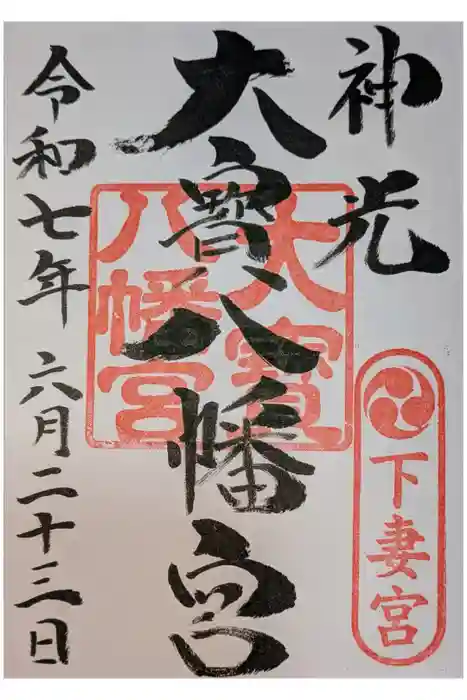 神光
下妻宮
大寳八幡宮
大寳八幡宮
令和七年 六月二十三日